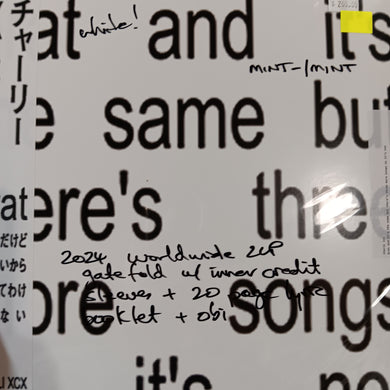 チャーリー
at
だけど
いから
てわけ
ない
LI XCX
at and it's
e same but
ere's three
ore songs
it's no
white!
MINT-/MINT
2024 worldwide 2LP
gatefold w/ inner credit
sleeves + 20 page lyric
booklet + obi